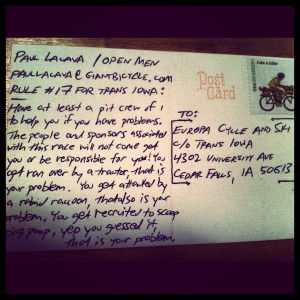 PAUL LACAVA / OPEN MEN
PAULLACAVA@GIANTBICYCLE.COM
RULE #17 FOR TRANS IOWA:
Have at least a pit crew of 1
to help you if you have problems.
The people and sponsors associated
with this race will not come get
you or be responsible for you! You
get ran over by a tractor, that is
your problem. You get attacked by
a rabid raccoon, that also is your
problem. You get recruited to scoop
pig poop, yep you guessed it,
that is your problem.
Post
Card
TO:
EUROPA CYCLE AND SKI
c/o TRANS IOWA
4302 UNIVERSITY AVE
CEDAR FALLS, IA 50613